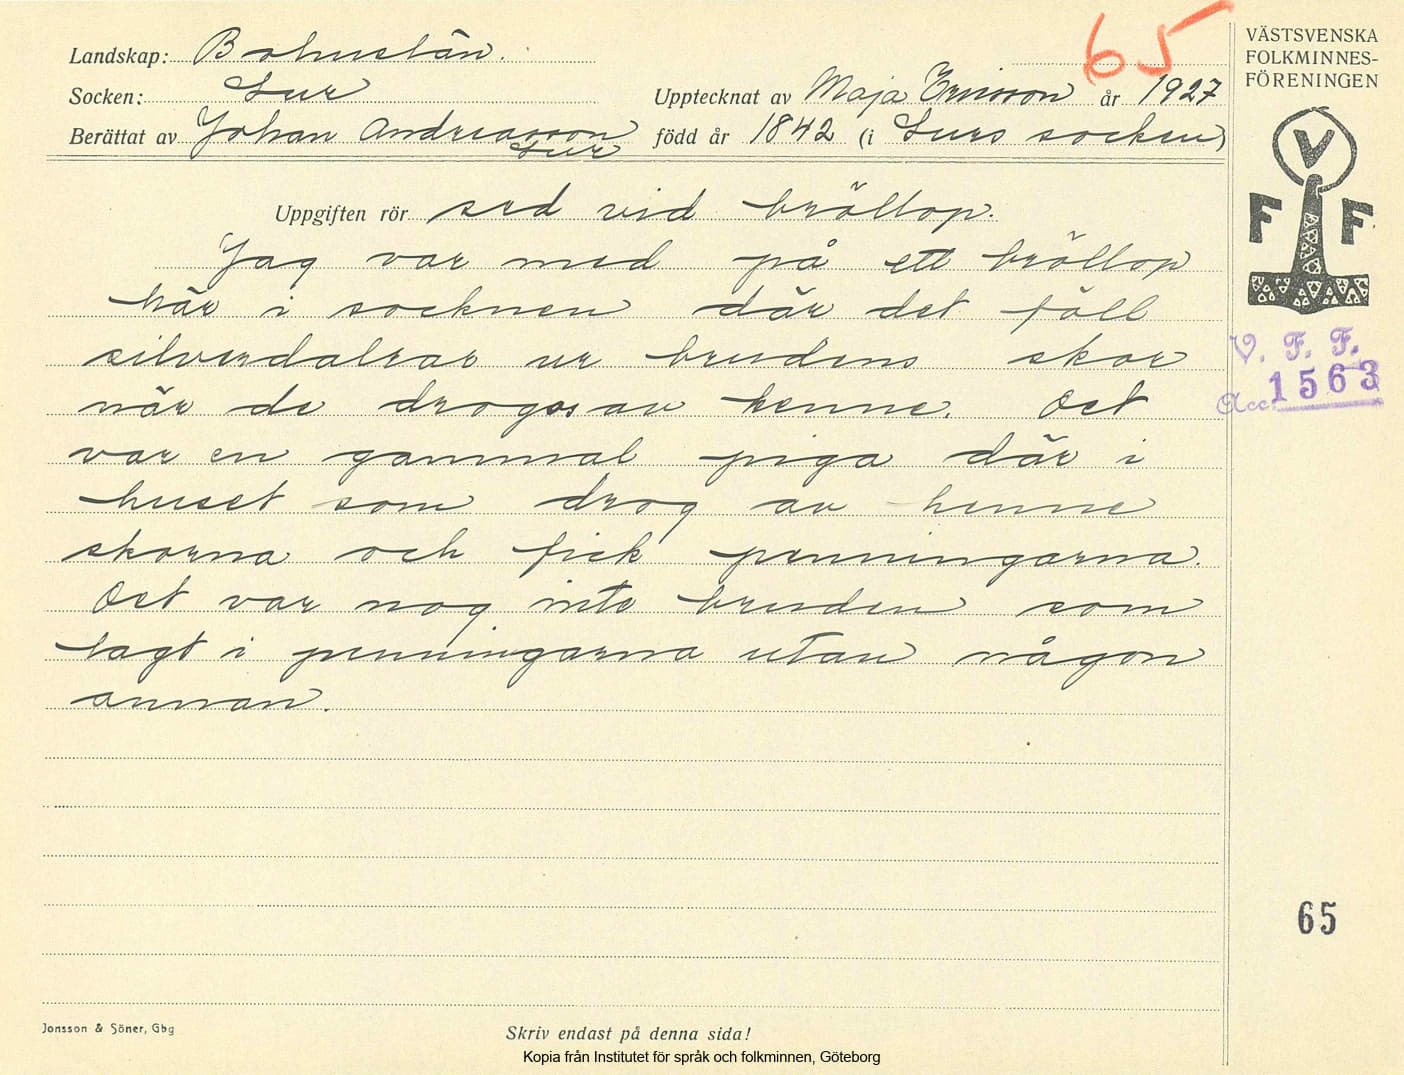 65
VÄSTSVENSKA
FOLKMINNES-
FÖRENINGEN
Landskap: Bohuslän.
Socken: Lur
Upptecknat av Maja Ericsson år 1927
Berättat av Johan Andreasson
Lur
född år 1842 (i Lurs socken)
V
F F
Uppgiften rör sed vid bröllop.
Jag var med på ett bröllop
här i socknen där det föll
silverdalrar ur brudens skor
när de drogos av henne. Det
var en gammal piga där i
huset som drog av henne
skorna och fick penningarna.
Det var nog inte bruden som
lagt i penningarna utan någon
annan.
V. F. F.
Acc. 1563
65
Jonsson & Söner, Gbg
Skriv endast på denna sida!
Kopia från Institutet för språk och folkminnen, Göteborg